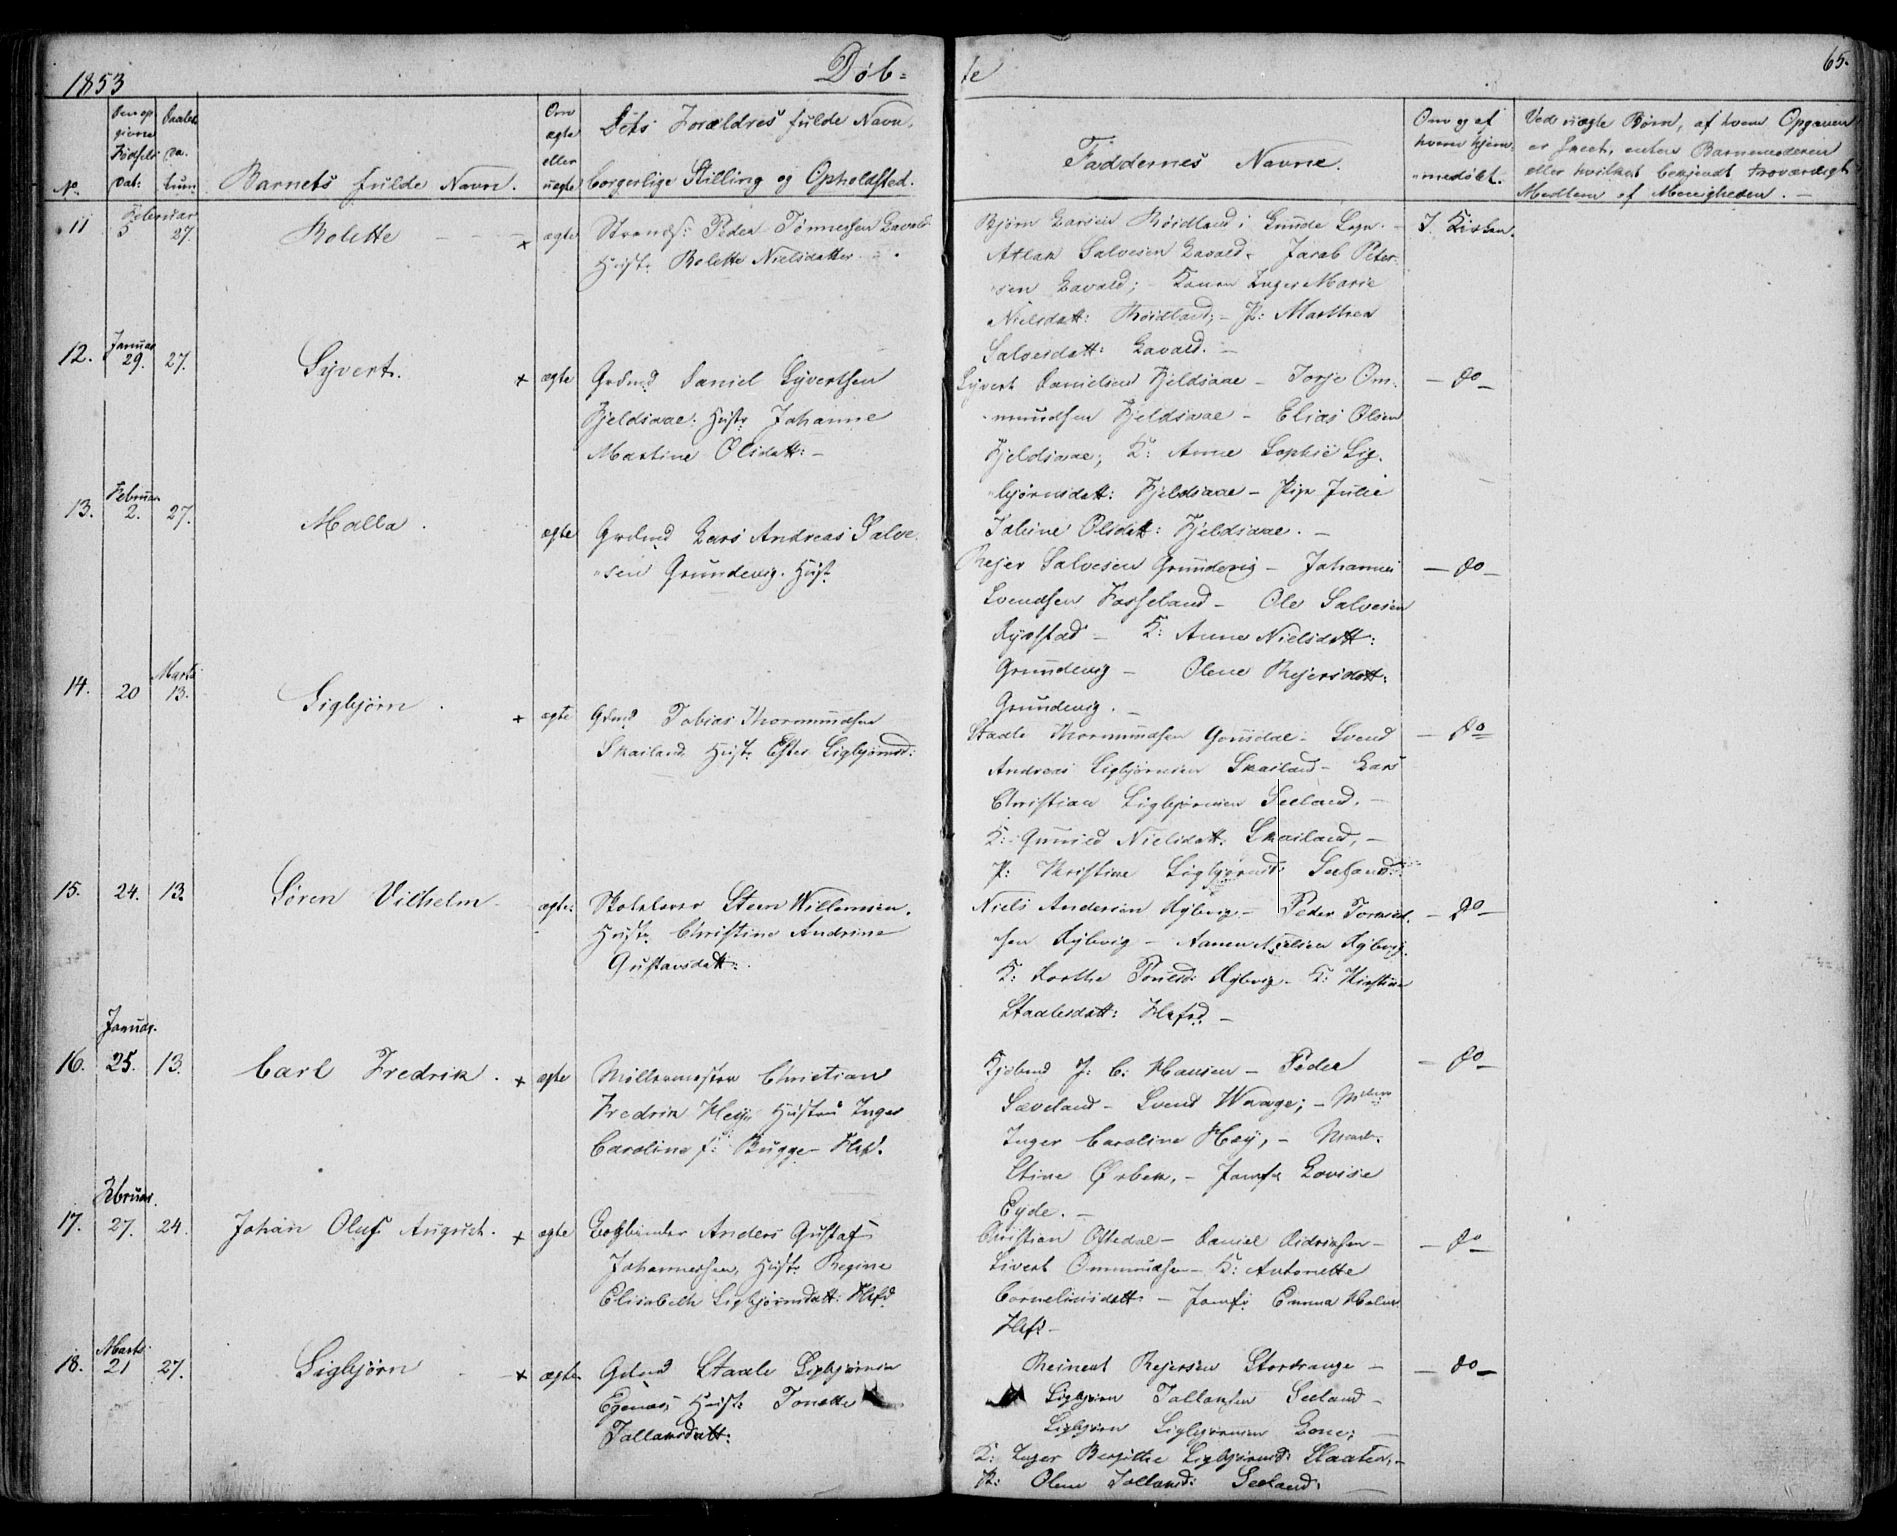 1853
Døb=
te
65.
No.
Den op
givne
Fødsels
Dat:
Daabs
Da-
tum
Barnets fulde Navn.
Om
ægte
eller
uægte
Dets Forældres fulde Navn,
borgerlige Stilling og Opholdsted.
Faddernes Navne.
Om og af
hvem hjem-
medøbt.
Ved uægte Børn, af hvem Opgaven
er skeet, enten Barnemoderen
eller hvilket bekjendt troværdigt
Medlem af Menigheden. -
11
Februar
5
27.
Bolette
+
ægte
Strands: Peder Tønnessen Lavold
Hust: Bolette Nielsdatter
Bjørn Larsen Røidland i Sogn. -
Atlak Salvesen Lavold. Jacob Peter-
sen Lavold; - Konen Inger Marie
Nielsdatt: Røidland; - P: Marthea
Salvesdatt: Lavold. -
I Kirken.
12.
Januar
29.
27.
Syvert.
+
ægte
Grdmd Daniel Syvertsen
Fjeldsaae. Hustr Johanne
Martine Olsdatt: -
Syvert Danielsen Fjeldsaae - Torje Om-
mundsen Fjeldsaae - Elias Olsen
Fjeldsaae; K: Anne Sophie Sig-
bjørnsdatt: Fjeldsaae - Pige Julie
Tobine Olsdatt: Fjeldsaae. -
- do -
13.
Februar
2.
27.
Malla.
ægte
Grdmd Lars Andreas Salve-
sen Grundevig. Hust:
Rejer Salvesen Grundevig - Johannes
Svendsen Fosseland - Ole Salvesen
Rystad - K: Anne Nielsdatt:
Grundevig - Olene Rejersdatt:
Grundevig. -
- do -
14.
20
Marts
13.
Sigbjørn.
+
ægte
Grdmd Tobias Thormundsen
Skailand Hust: Ester Sigbjørnsd:
Staale Thormundsen - Svend
Andreas Sigbjørnsen Skailand - Lars
Christian Sigbjørnsen Seeland. -
K: Gunild Nielsdatt: Skailand, -
P: Kristine Sigbjørnsd: Seeland.
- do
15.
24.
13.
Søren Vilhelm
ægte.
Skolelærer Steen Willumsen.
Hust: Christine Andrine
Gustavsdatt:
Niels Andersen Rybvig - Peder Tormod-
sen Rybvig - Aanen Nielsen Rybvig.
K: Dorthe Poulsd: Rybvig - K: Kirstine
Staalesdatt: Flekfd: -
- do -
16.
Januar.
25.
13.
Carl Fredrik.
+
ægte
Møllermester Christian
Fredrik Høy, Hustru Inger
Caroline f: Bugge Flekf.
Kjøbmd J: C: Hansen - Peder
Sæveland - Svend Waage; - Mdme
Inger Caroline Høy, - Mad:
Stine Ørbek. - Jomfr Lovise
Eyde. -
- do -
17.
Februar.
27.
24.
Johan Oluf August.
+
ægte
Bogbinder Anders Gustaf
Johannessen, Hust: Regine
Elisabeth Sigbjørnsdatt: Flekfd
Christian Oftedal - Daniel Didriksen -
Sivert Ommundsen - K: Antonette
Corneliusdatt: - Jomfr Emma Holm
Flekf: -
- do -
18.
Marts
21
27.
Sigbjørn
+
ægte
Grdmd Staale Sigbjørnsen
Egenes, Hust: Tonette
Tallaksdatt:
Reinert Rejersen Stordrange -
Sigbjørn Tallaksen Seeland -
Sigbjørn Sigbjørnsen Lone; -
K: Inger Bergithe Sigbjørnsd: -
P: Olene Tallaksd: Seeland. -
- do -